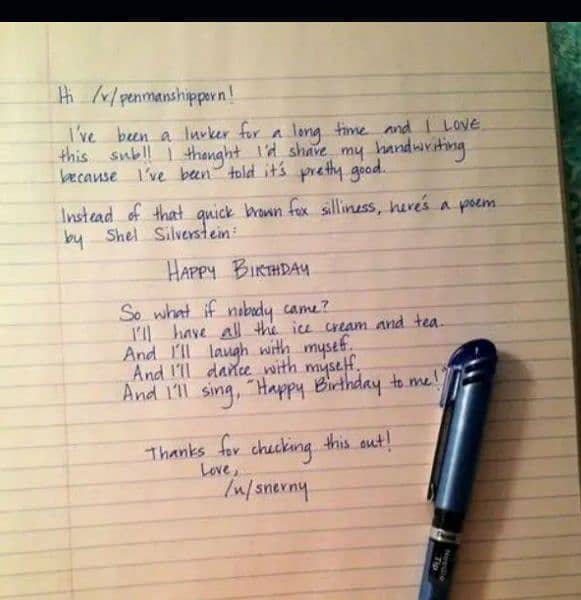 Hi /r/penmanshipporn!
I've been a lurker for a long time and I LOVE
this sub!! I thought I'd share my handwriting
because I've been told it's pretty good.
Instead of that quick brown fox silliness, here's a poem
by Shel Silverstein:
HAPPY BIRTHDAY
So what if nobody came?
I'll have all the ice cream and tea.
And I'll laugh with myself.
And I'll dance with myself.
And I'll sing, "Happy Birthday to me!"
Thanks for checking this out!
Love,
/u/snerny
Needle
Tip